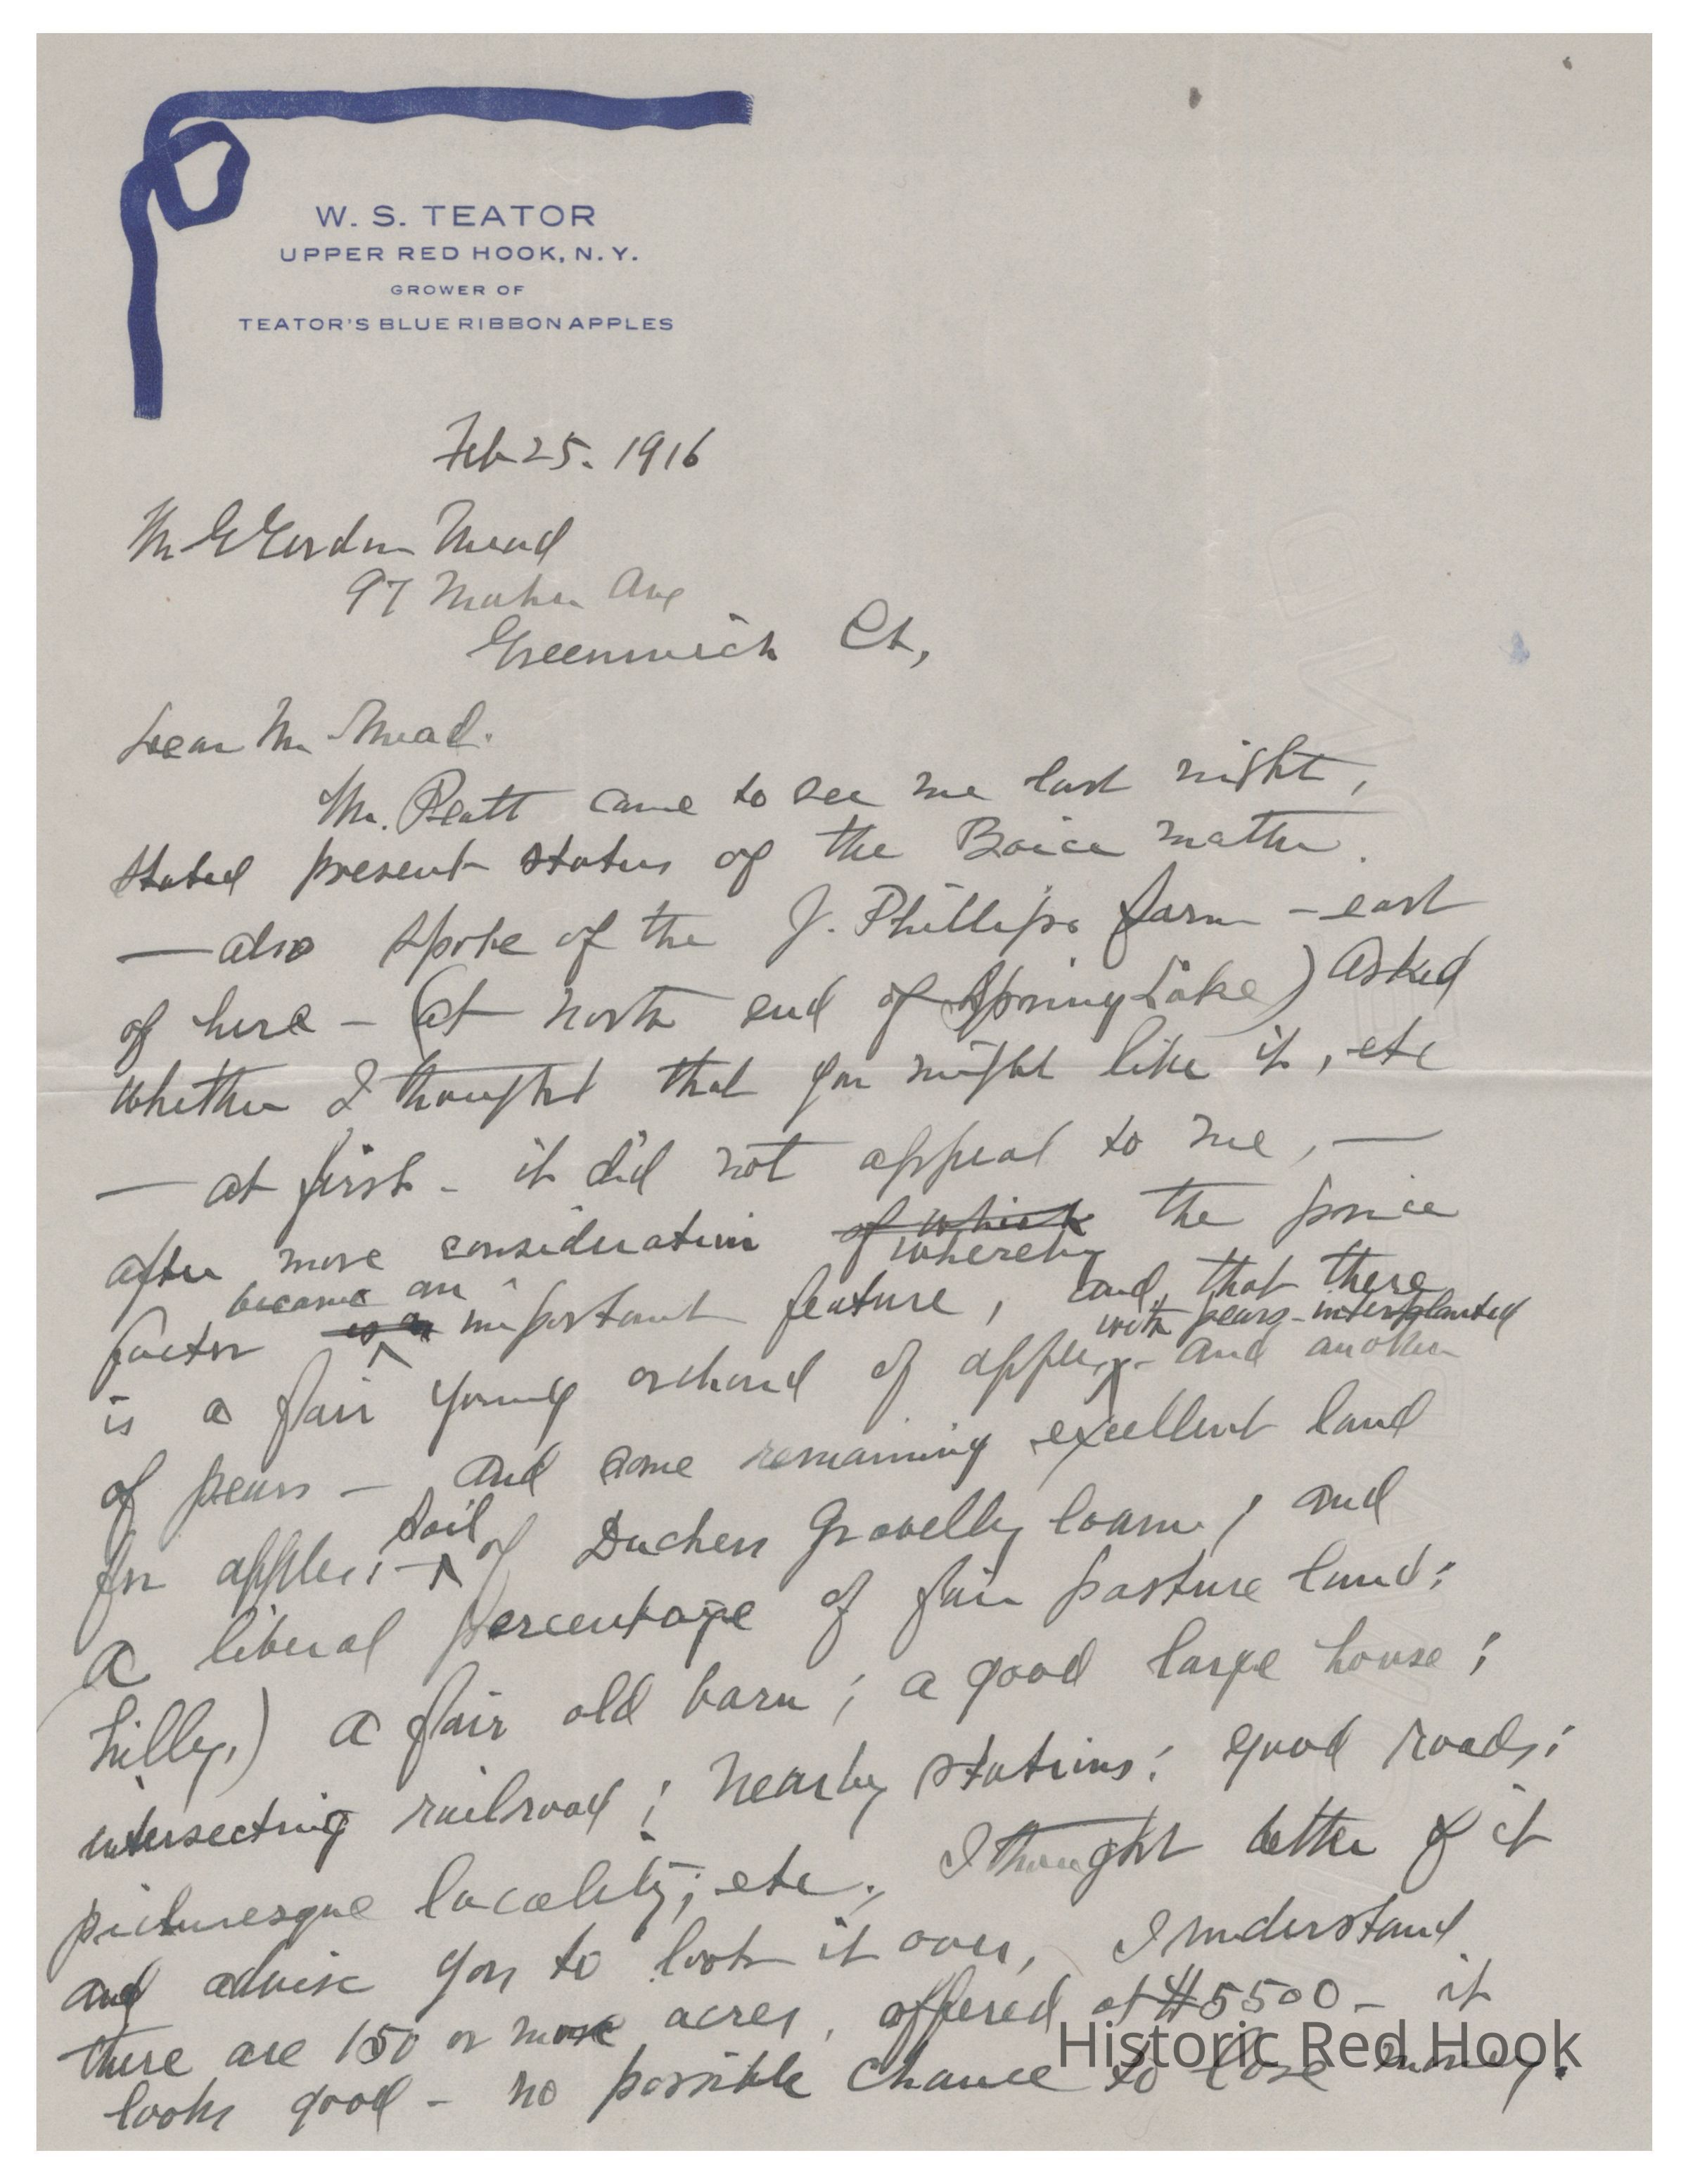 W. S. TEATOR
UPPER RED HOOK, N. Y.
GROWER OF
TEATOR'S BLUE RIBBON APPLES
Feb 25. 1916
Mr Gordon Mead
97 Ave
Greenwich Ct,
Dear Mr Mead.
Mr. came to see me last night,
stated present status of the Boice matter.
— also spoke of the J. Phillips farm – east
of here – (at north end of Spring Lake) asked
whether I thought that you might like it, etc
— at first – it did not appeal to me, —
after more consideration of which the price
whereby
became an
factor is an important feature, and that there
with pears – interplanted
is a fair young orchard of apples – and another
of pears – and some remaining excellent land
soil
for apples; – of Duchess Gravelly loam, and
a liberal percentage of fair pasture land;
hilly,) a fair old barn; a good large house;
intersecting railroad; nearby stations; good roads;
picturesque locality; etc., I thought better of it
and advise you to look it over, I understand
there are 150 or more acres, offered at $5500 – it
looks good – no possible chance to lose money.
Historic Red Hook